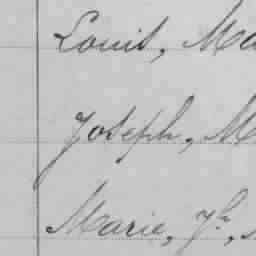 Louis, Ma
Joseph, M
Marie, Jh,